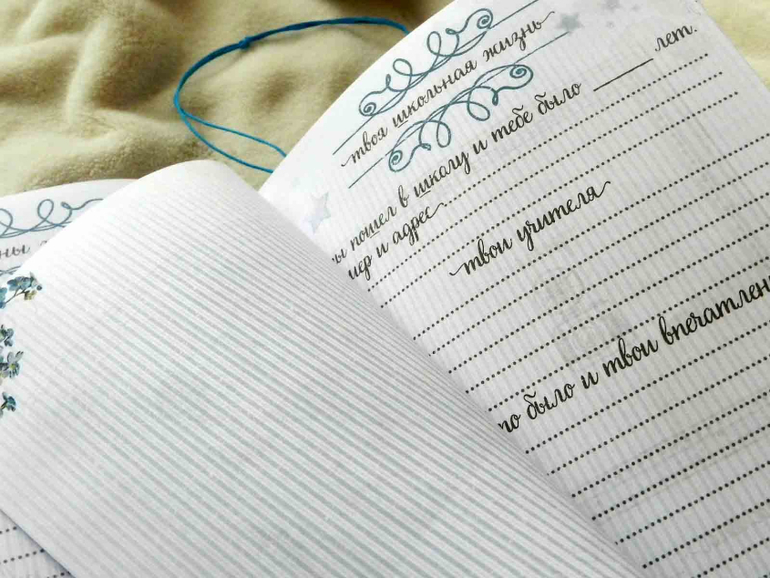 твоя школьная жизнь
пошел в школу и тебе было ______ лет.
и адрес
твои учителя
было и твои